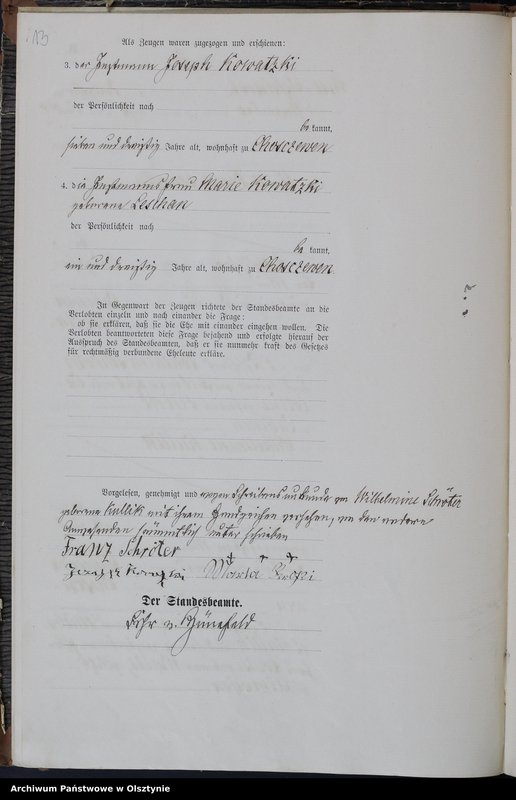 13
Als Zeugen waren zugezogen und erschienen:
3. der Instmann Joseph Kowatzki
der Persönlichkeit nach
be kannt,
sieben und dreißig Jahre alt, wohnhaft zu Choszewen
4. die Instmannsfrau Marie Kowatzki
geborene Leschan
der Persönlichkeit nach
be kannt,
ein und dreißig Jahre alt, wohnhaft zu Choszewen
In Gegenwart der Zeugen richtete der Standesbeamte an die
Verlobten einzeln und nach einander die Frage:
ob sie erklären, daß sie die Ehe mit einander eingehen wollen. Die
Verlobten beantworteten diese Frage bejahend und erfolgte hierauf der
Ausspruch des Standesbeamten, daß er sie nunmehr kraft des Gesetzes
für rechtmäßig verbundene Eheleute erkläre.
Vorgelesen, genehmigt und wegen Schreibensunkunde von Wilhelmine Schröter
geborene Kullik mit ihrem Handzeichen versehen, von den andern
Anwesenden sämmtlich unterschrieben
Franz Schröter
+ + +
Der Standesbeamte.